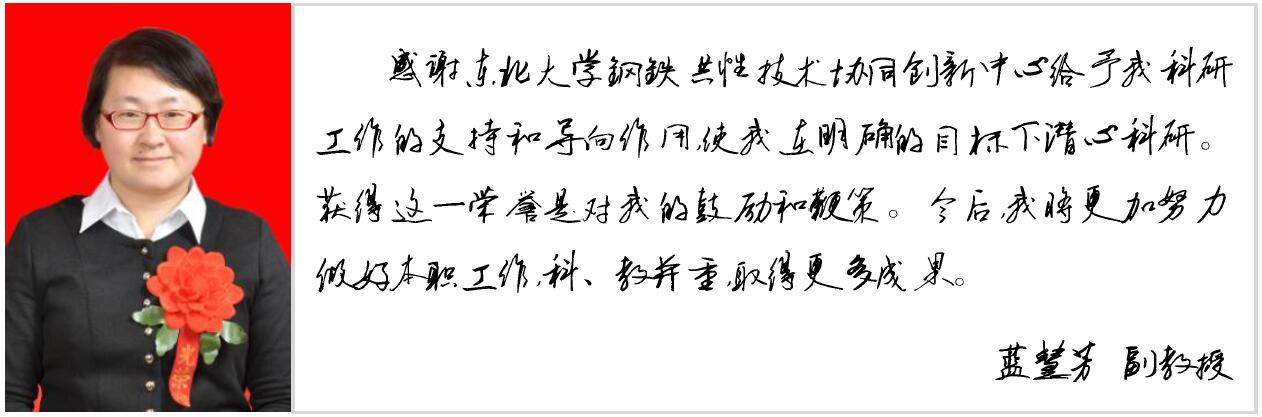 感谢东北大学钢铁共性技术协同创新中心给予我科研
工作的支持和导向作用,使我在明确的目标下潜心科研。
获得这一荣誉是对我的鼓励和鞭策。今后,我将更加努力
做好本职工作,科、教并重,取得更多成果。
蓝慧芳 副教授
光荣